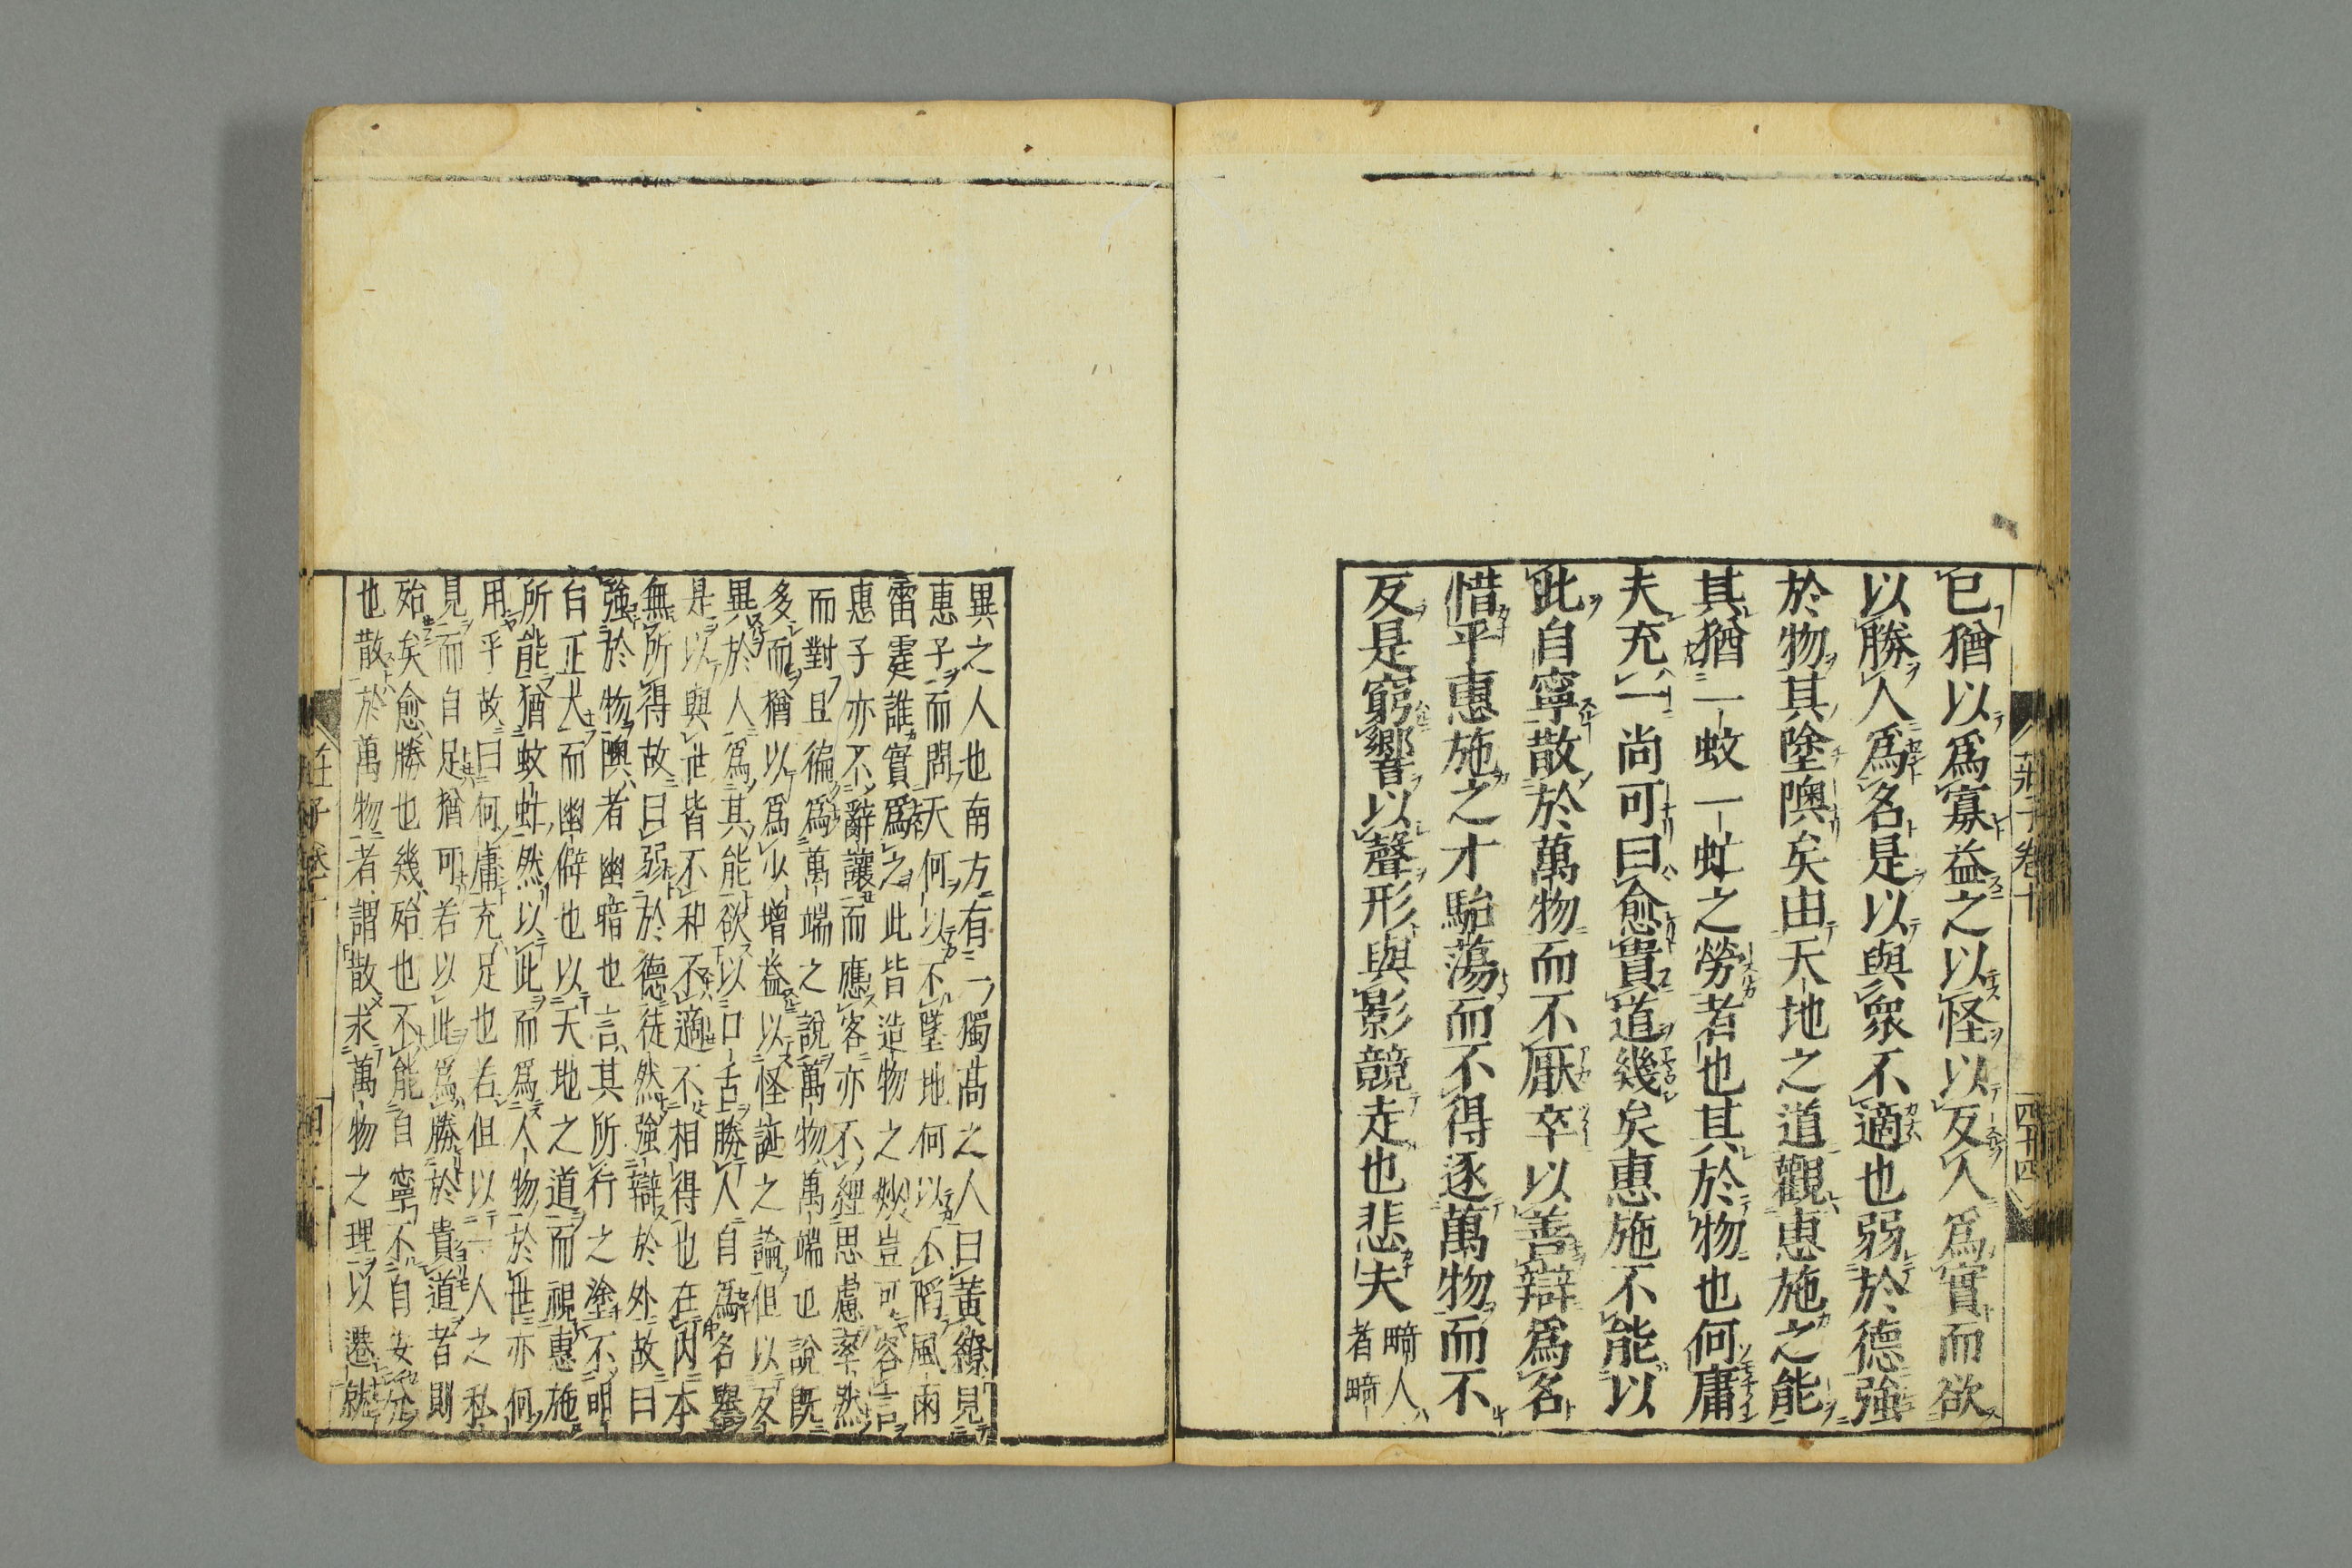 莊子卷十
四十四
已猶以爲寡益之以怪以反人爲實而欲
以勝人爲名是以與衆不適也弱於德強
於物其塗隩矣由天地之道觀惠施之能
其猶一蚊一虻之勞者也其於物也何庸
夫充一尚可曰愈貴道幾矣惠施不能以
此自寧散於萬物而不厭卒以善辯爲名
惜乎惠施之才駘蕩而不得逐萬物而不
反是窮響以聲形與影競走也悲夫
畸人
者畸
異之人也南方有一獨高之人曰黃繚見
惠子而問天何以不墜地何以不陷風雨
雷霆誰實爲之此皆造物之妙豈可容言
惠子亦不辭讓而應客亦不經思慮率然
而對且徧爲萬端之說萬物萬端也說既
多而猶以爲少增益以怪誕之論但以反
異於人爲其能欲以口舌勝人自爲名譽
是以與世皆不和不適不相得也在內本
無所得故曰弱於德徒然強辯於外故曰
強於物隩者幽暗也言其所行之塗不明
白正大而幽僻也以天地之道而視惠施
所能猶蚊虻然以此而爲人物於世亦何
用乎故曰何庸充足也若但以一人之私
見而自足猶可若以此爲勝於貴道者則
殆矣愈勝也幾殆也不能自寧不自安分
也散於萬物者謂散求萬物之理以遷就
莊子卷十